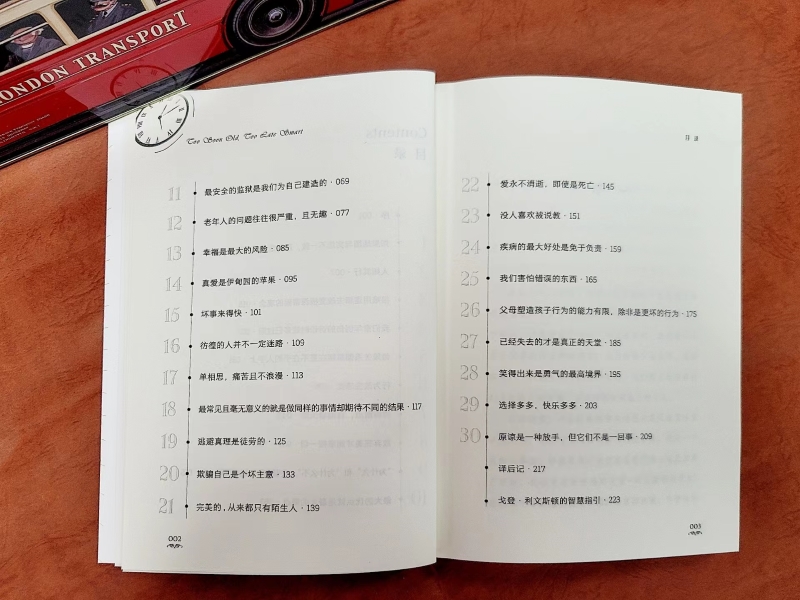 LONDON TRANSPORT
Too Soon Old, Too Late Smart
11 最安全的监狱是我们为自己建造的 · 069
12 老年人的问题往往很严重，且无趣 · 077
13 幸福是最大的风险 · 085
14 真爱是伊甸园的苹果 · 095
15 坏事来得快 · 101
16 彷徨的人并不一定迷路 · 109
17 单相思，痛苦且不浪漫 · 113
18 最常见且毫无意义的就是做同样的事情却期待不同的结果 · 117
19 逃避真理是徒劳的 · 125
20 欺骗自己是个坏主意 · 133
21 完美的，从来都只有陌生人 · 139
002
目 录
22 爱永不消逝，即使是死亡 · 145
23 没人喜欢被说教 · 151
24 疾病的最大好处是免于负责 · 159
25 我们害怕错误的东西 · 165
26 父母塑造孩子行为的能力有限，除非是更坏的行为 · 175
27 已经失去的才是真正的天堂 · 185
28 笑得出来是勇气的最高境界 · 195
29 选择多多，快乐多多 · 203
30 原谅是一种放手，但它们不是一回事 · 209
译后记 · 217
戈登 · 利文斯顿的智慧指引 · 223
003